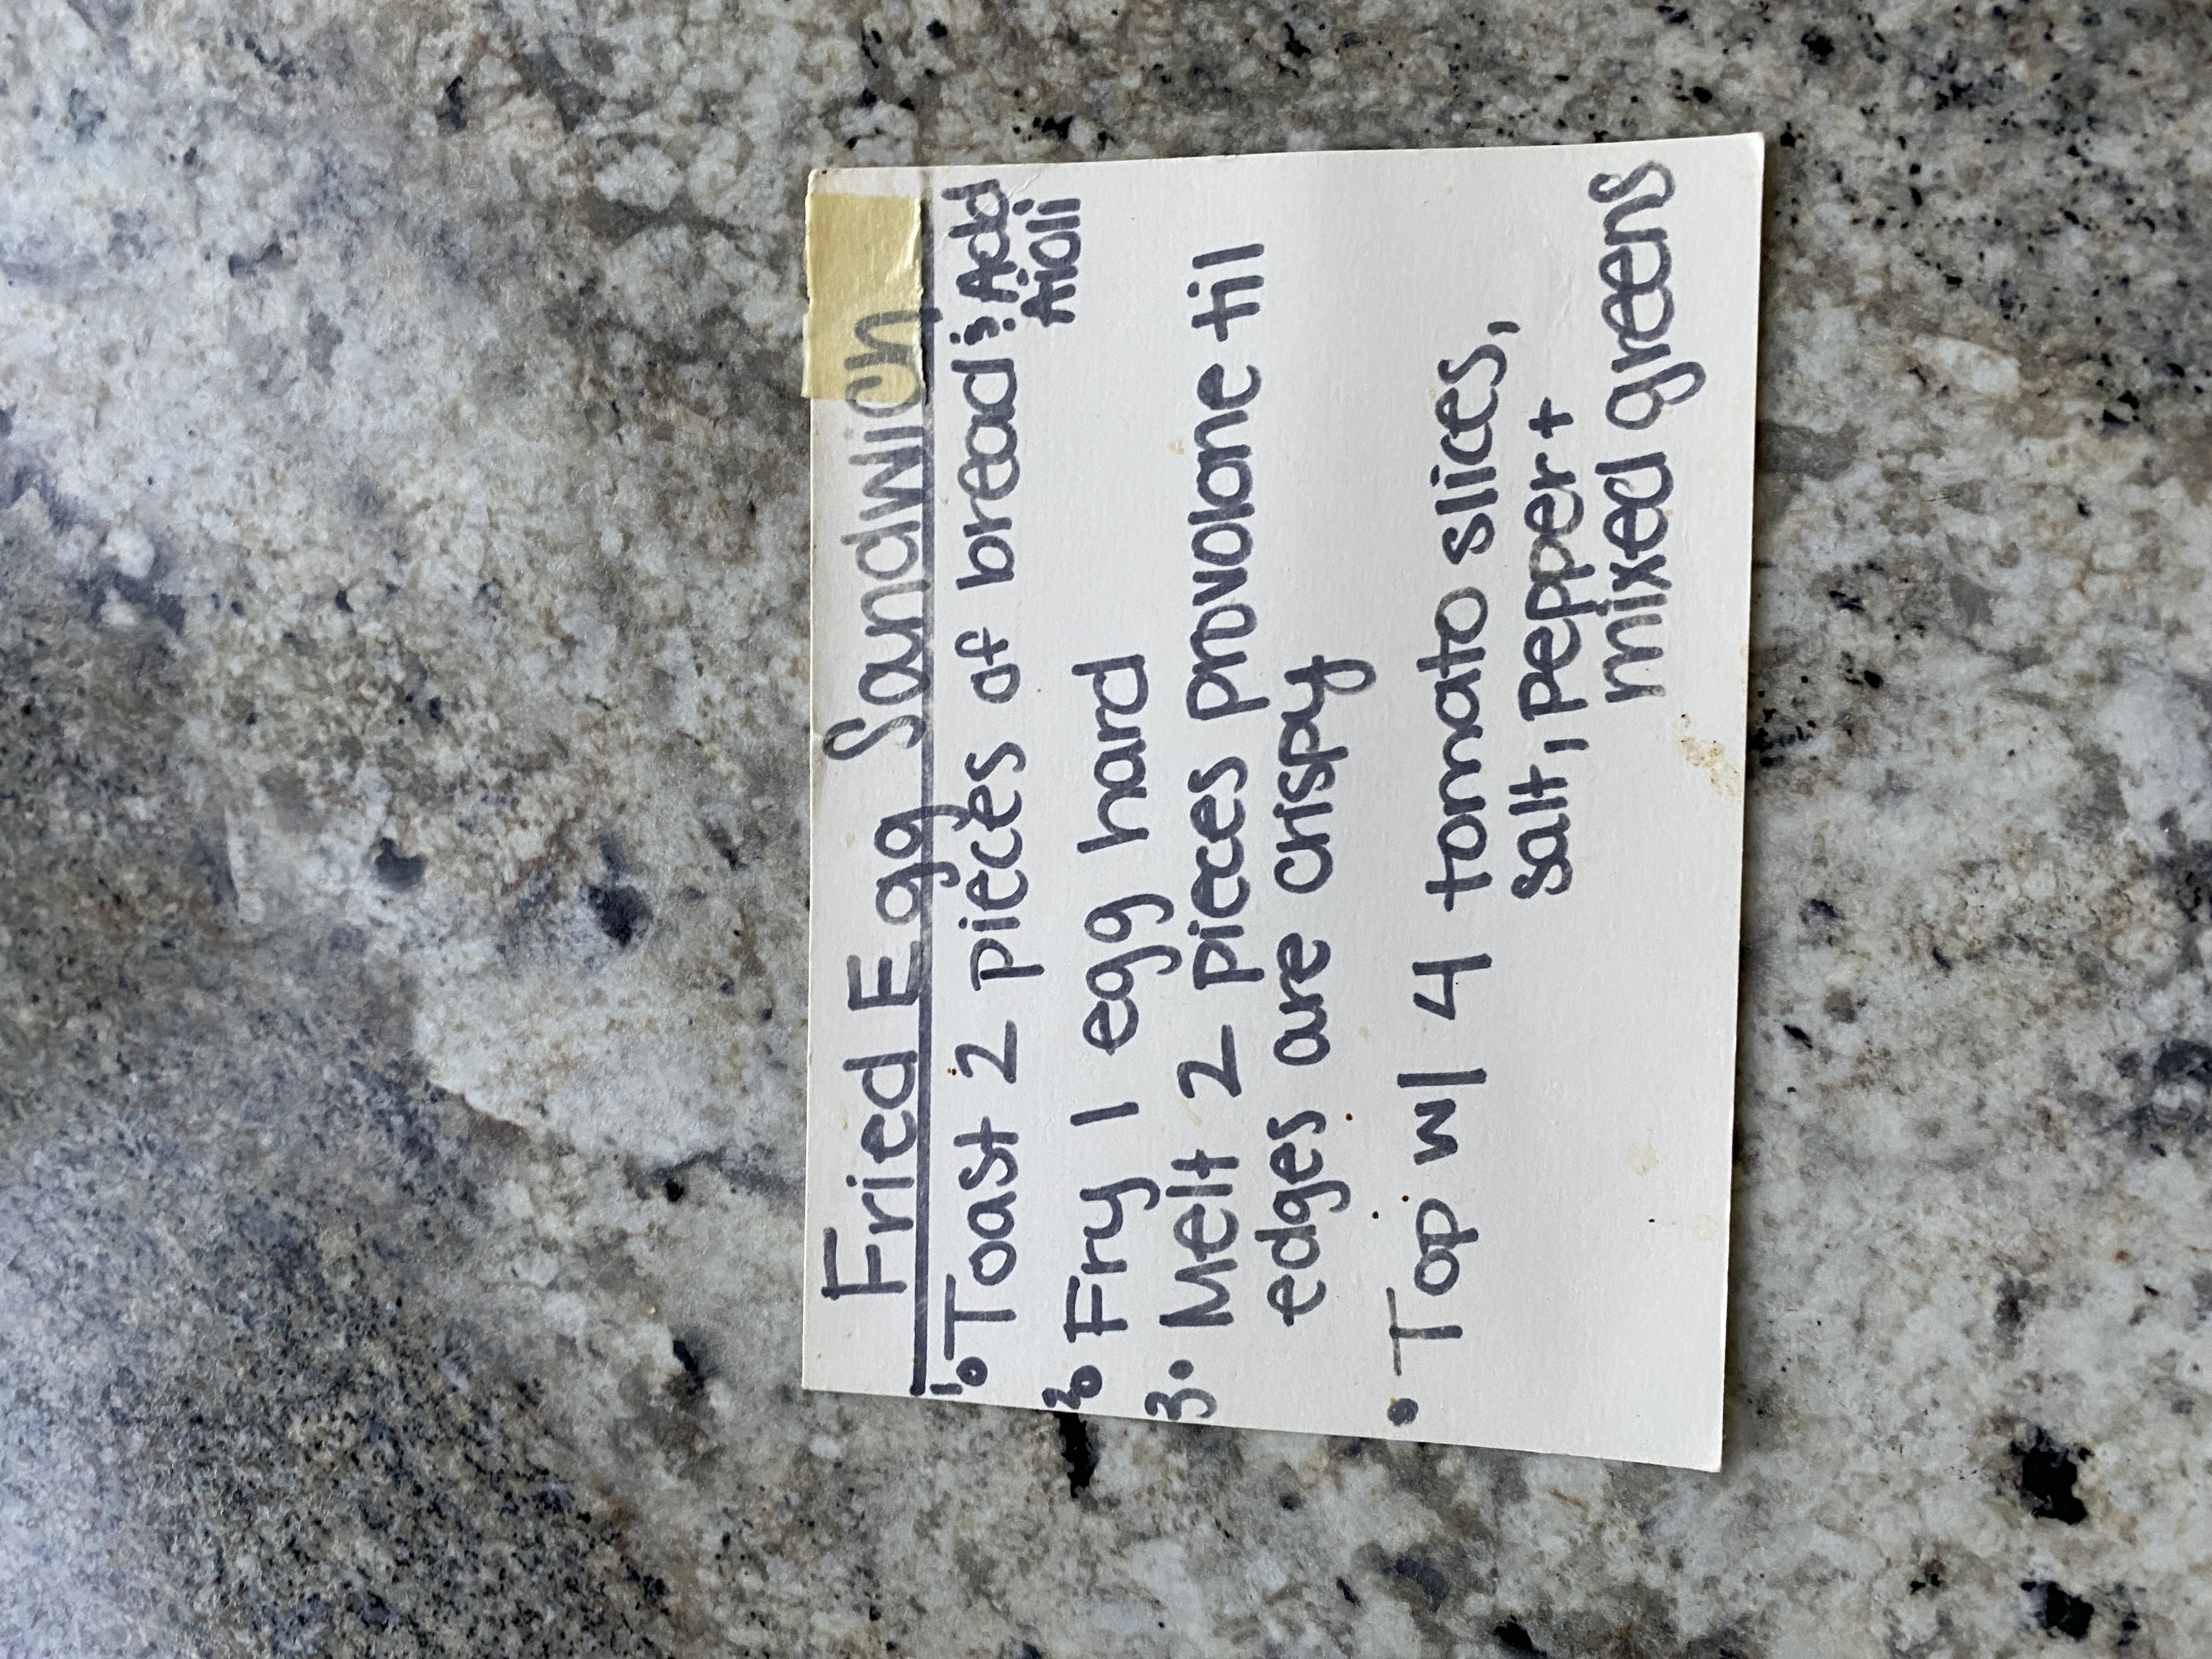 Fried Egg Sandwich
1. Toast 2 pieces of bread; Add
Aioli
2. Fry 1 egg hard
3. Melt 2 pieces provolone til
edges are crispy
• Top w/ 4 tomato slices,
salt, pepper +
mixed greens